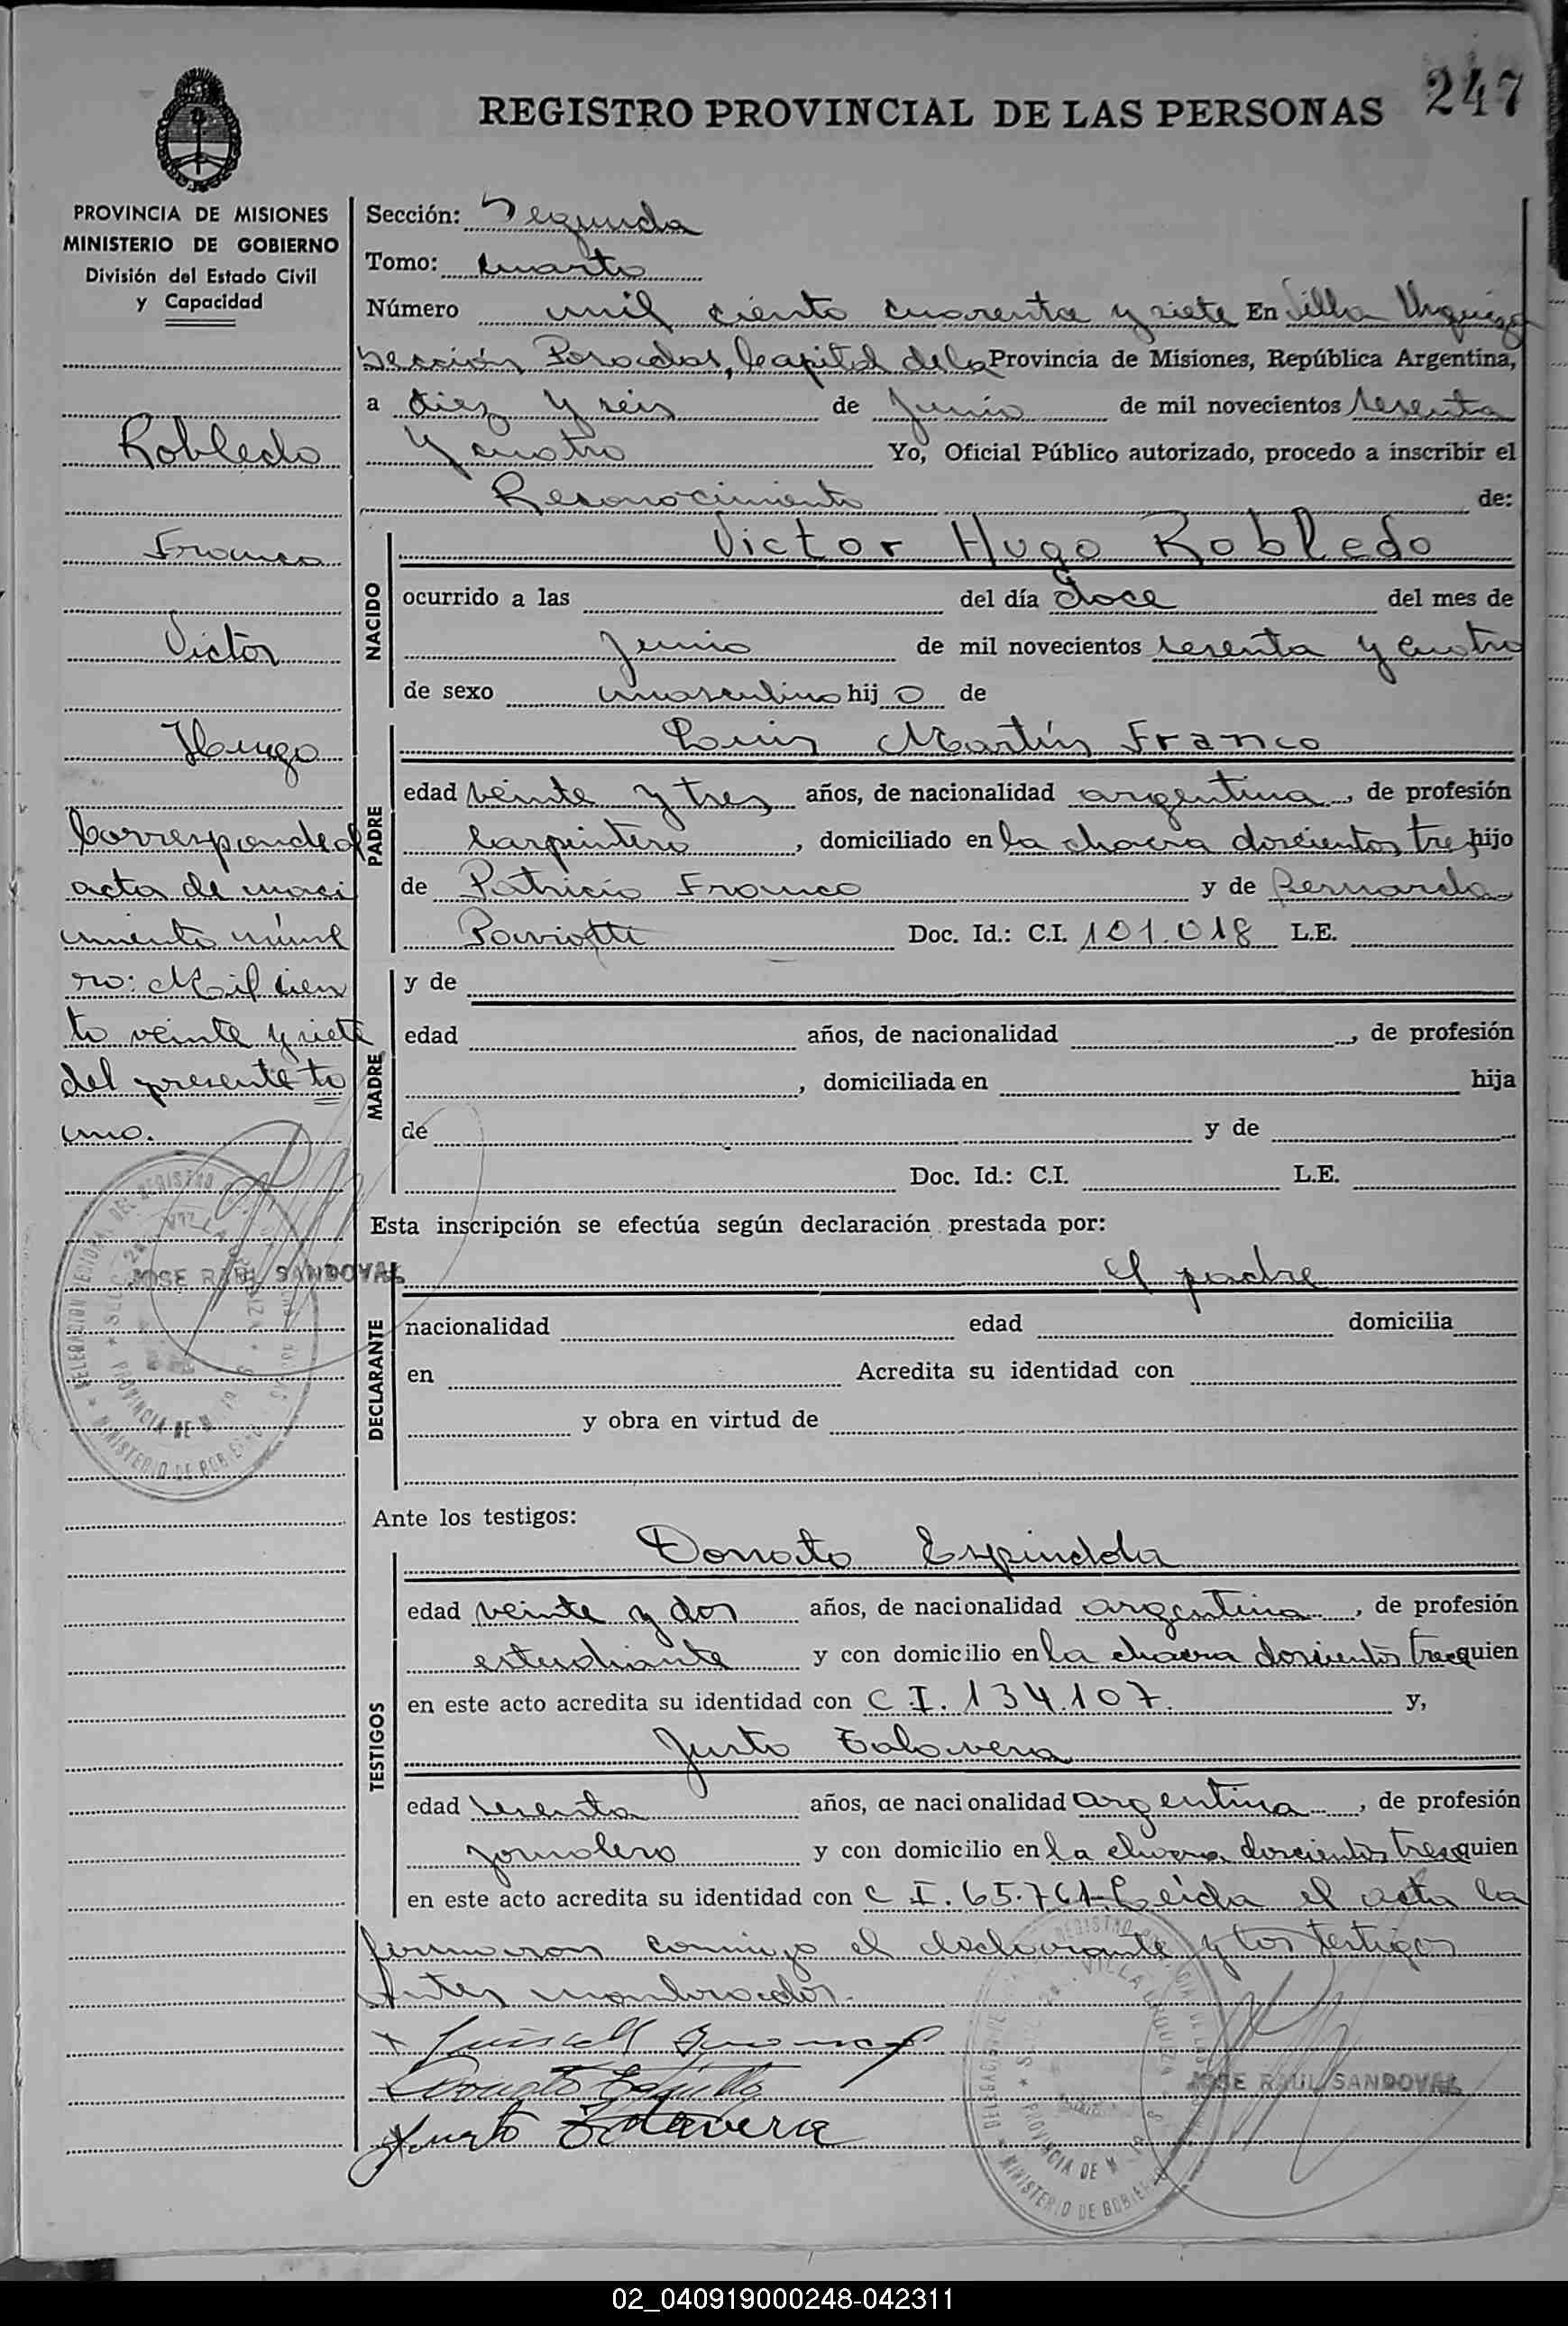 247
REGISTRO PROVINCIAL DE LAS PERSONAS
PROVINCIA DE MISIONES
MINISTERIO DE GOBIERNO
División del Estado Civil
y Capacidad
Robledo
Franco
Victor
Hugo
Corresponde al
acta de naci
miento núme
ro: Mil cien
to veinte y siete
del presente to
mo.
JOSE RAUL SANDOVAL
Sección: Segunda
Tomo: cuarto
Número mil ciento cuarenta y siete En Villa Urquiza
Sección Posadas, Capital de la Provincia de Misiones, República Argentina,
a diez y seis de Junio de mil novecientos sesenta
y cuatro Yo, Oficial Público autorizado, procedo a inscribir el
Reconocimiento de:
NACIDO
Victor Hugo Robledo
ocurrido a las del día doce del mes de
Junio de mil novecientos sesenta y cuatro
de sexo masculino hijo de
PADRE
Luis Martín Franco
edad veinte y tres años, de nacionalidad argentina, de profesión
carpintero, domiciliado en la chacra doscientos tres hijo
de Patricio Franco y de Bernarda
Doc. Id.: C.I. 101.018 L.E.
MADRE
y de
edad años, de nacionalidad , de profesión
, domiciliada en hija
de y de
Doc. Id.: C.I. L.E.
Esta inscripción se efectúa según declaración prestada por:
DECLARANTE
el padre
nacionalidad edad domicilia
en Acredita su identidad con
y obra en virtud de
Ante los testigos:
TESTIGOS
Donato Espindola
edad veinte y dos años, de nacionalidad argentina, de profesión
estudiante y con domicilio en la chacra doscientos tres quien
en este acto acredita su identidad con C I. 134.107. y,
Justo Talavera
edad sesenta años, de nacionalidad argentina, de profesión
jornalero y con domicilio en la chacra doscientos tres quien
en este acto acredita su identidad con C I. 65.761-Leída el acta la
firmaron conmigo el declarante y los testigos
antes nombrados.
Luis M Franco
Donato Espindola
Justo Talavera
JOSE RAUL SANDOVAL
02_040919000248-042311